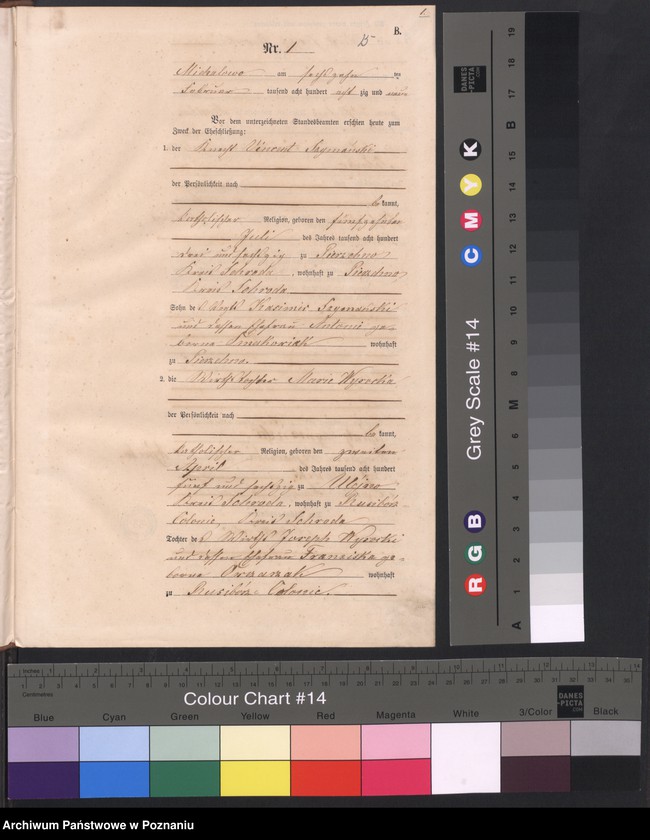 1.
B.
15
Nr. 1
Michalowo am sechzehn ten
Februar tausend acht hundert acht zig und neun
Vor dem unterzeichneten Standesbeamten erschien heute zum
Zweck der Eheschließung:
1. der Knecht Vincent Szymański
der Persönlichkeit nach
be kannt,
katholischer Religion, geboren den fünfzehnten
Juli des Jahres tausend acht hundert
drei und sechzig zu Pierzchno
Kreis Schroda, wohnhaft zu Pierzchno
Kreis Schroda
Sohn des Kasimir Szymański
und dessen Ehefrau Antonie ge-
borene wohnhaft
zu Pierzchno.
2. die Wirthstochter Marie Wyrecka
der Persönlichkeit nach
be kannt,
katholischer Religion, geboren den zweiten
April des Jahres tausend acht hundert
fünf und sechzig zu Ulejno
Kreis Schroda, wohnhaft zu Rusibórz
Colonie, Kreis Schroda
Tochter des Wirths Joseph Wyrecki
und dessen Ehefrau Franziska ge-
borene wohnhaft
zu Rusibórz-Colonie.
DANES
-PICTA
.COM
Grey Scale #14
R G B
C M Y K
A 1 2 3 4 5 6 M 8 9 10 11 12 13 14 15 B 17 18 19
Inches
Centimetres
Colour Chart #14
DANES
-PICTA
.COM
Blue Cyan Green Yellow Red Magenta White 3/Color Black
Archiwum Państwowe w Poznaniu